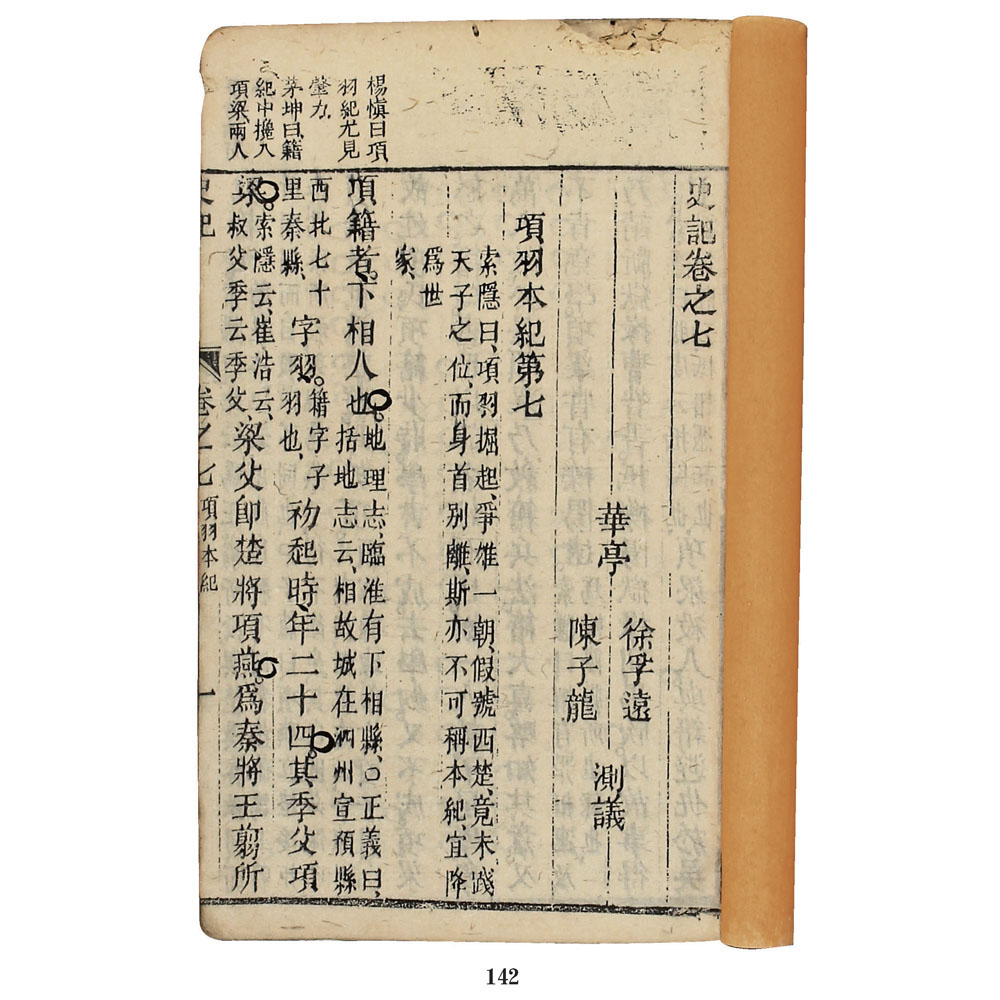 史記卷之七
華亭
徐孚遠
陳子龍
測議
項羽本紀第七
索隱曰、項羽掘起、爭雄一朝、假號西楚、竟未踐
天子之位、而身首別離、斯亦不可稱本紀、宜降
爲世
家、
項籍者、下相人也、地理志、臨淮有下相縣、○正義曰、
括地志云、相故城在泗州宣預縣
西北七十
里秦縣、
字羽。籍字子
羽也、
初起時、年二十四。其季父項
梁。索隱云、崔浩云、
叔父季云季父、
梁父卽楚將項燕。爲秦將王翦所
楊慎曰項
羽紀尤見
筆力、
茅坤曰籍
紀中攙入
項梁兩人
史記
卷之七
項羽本紀
一
142